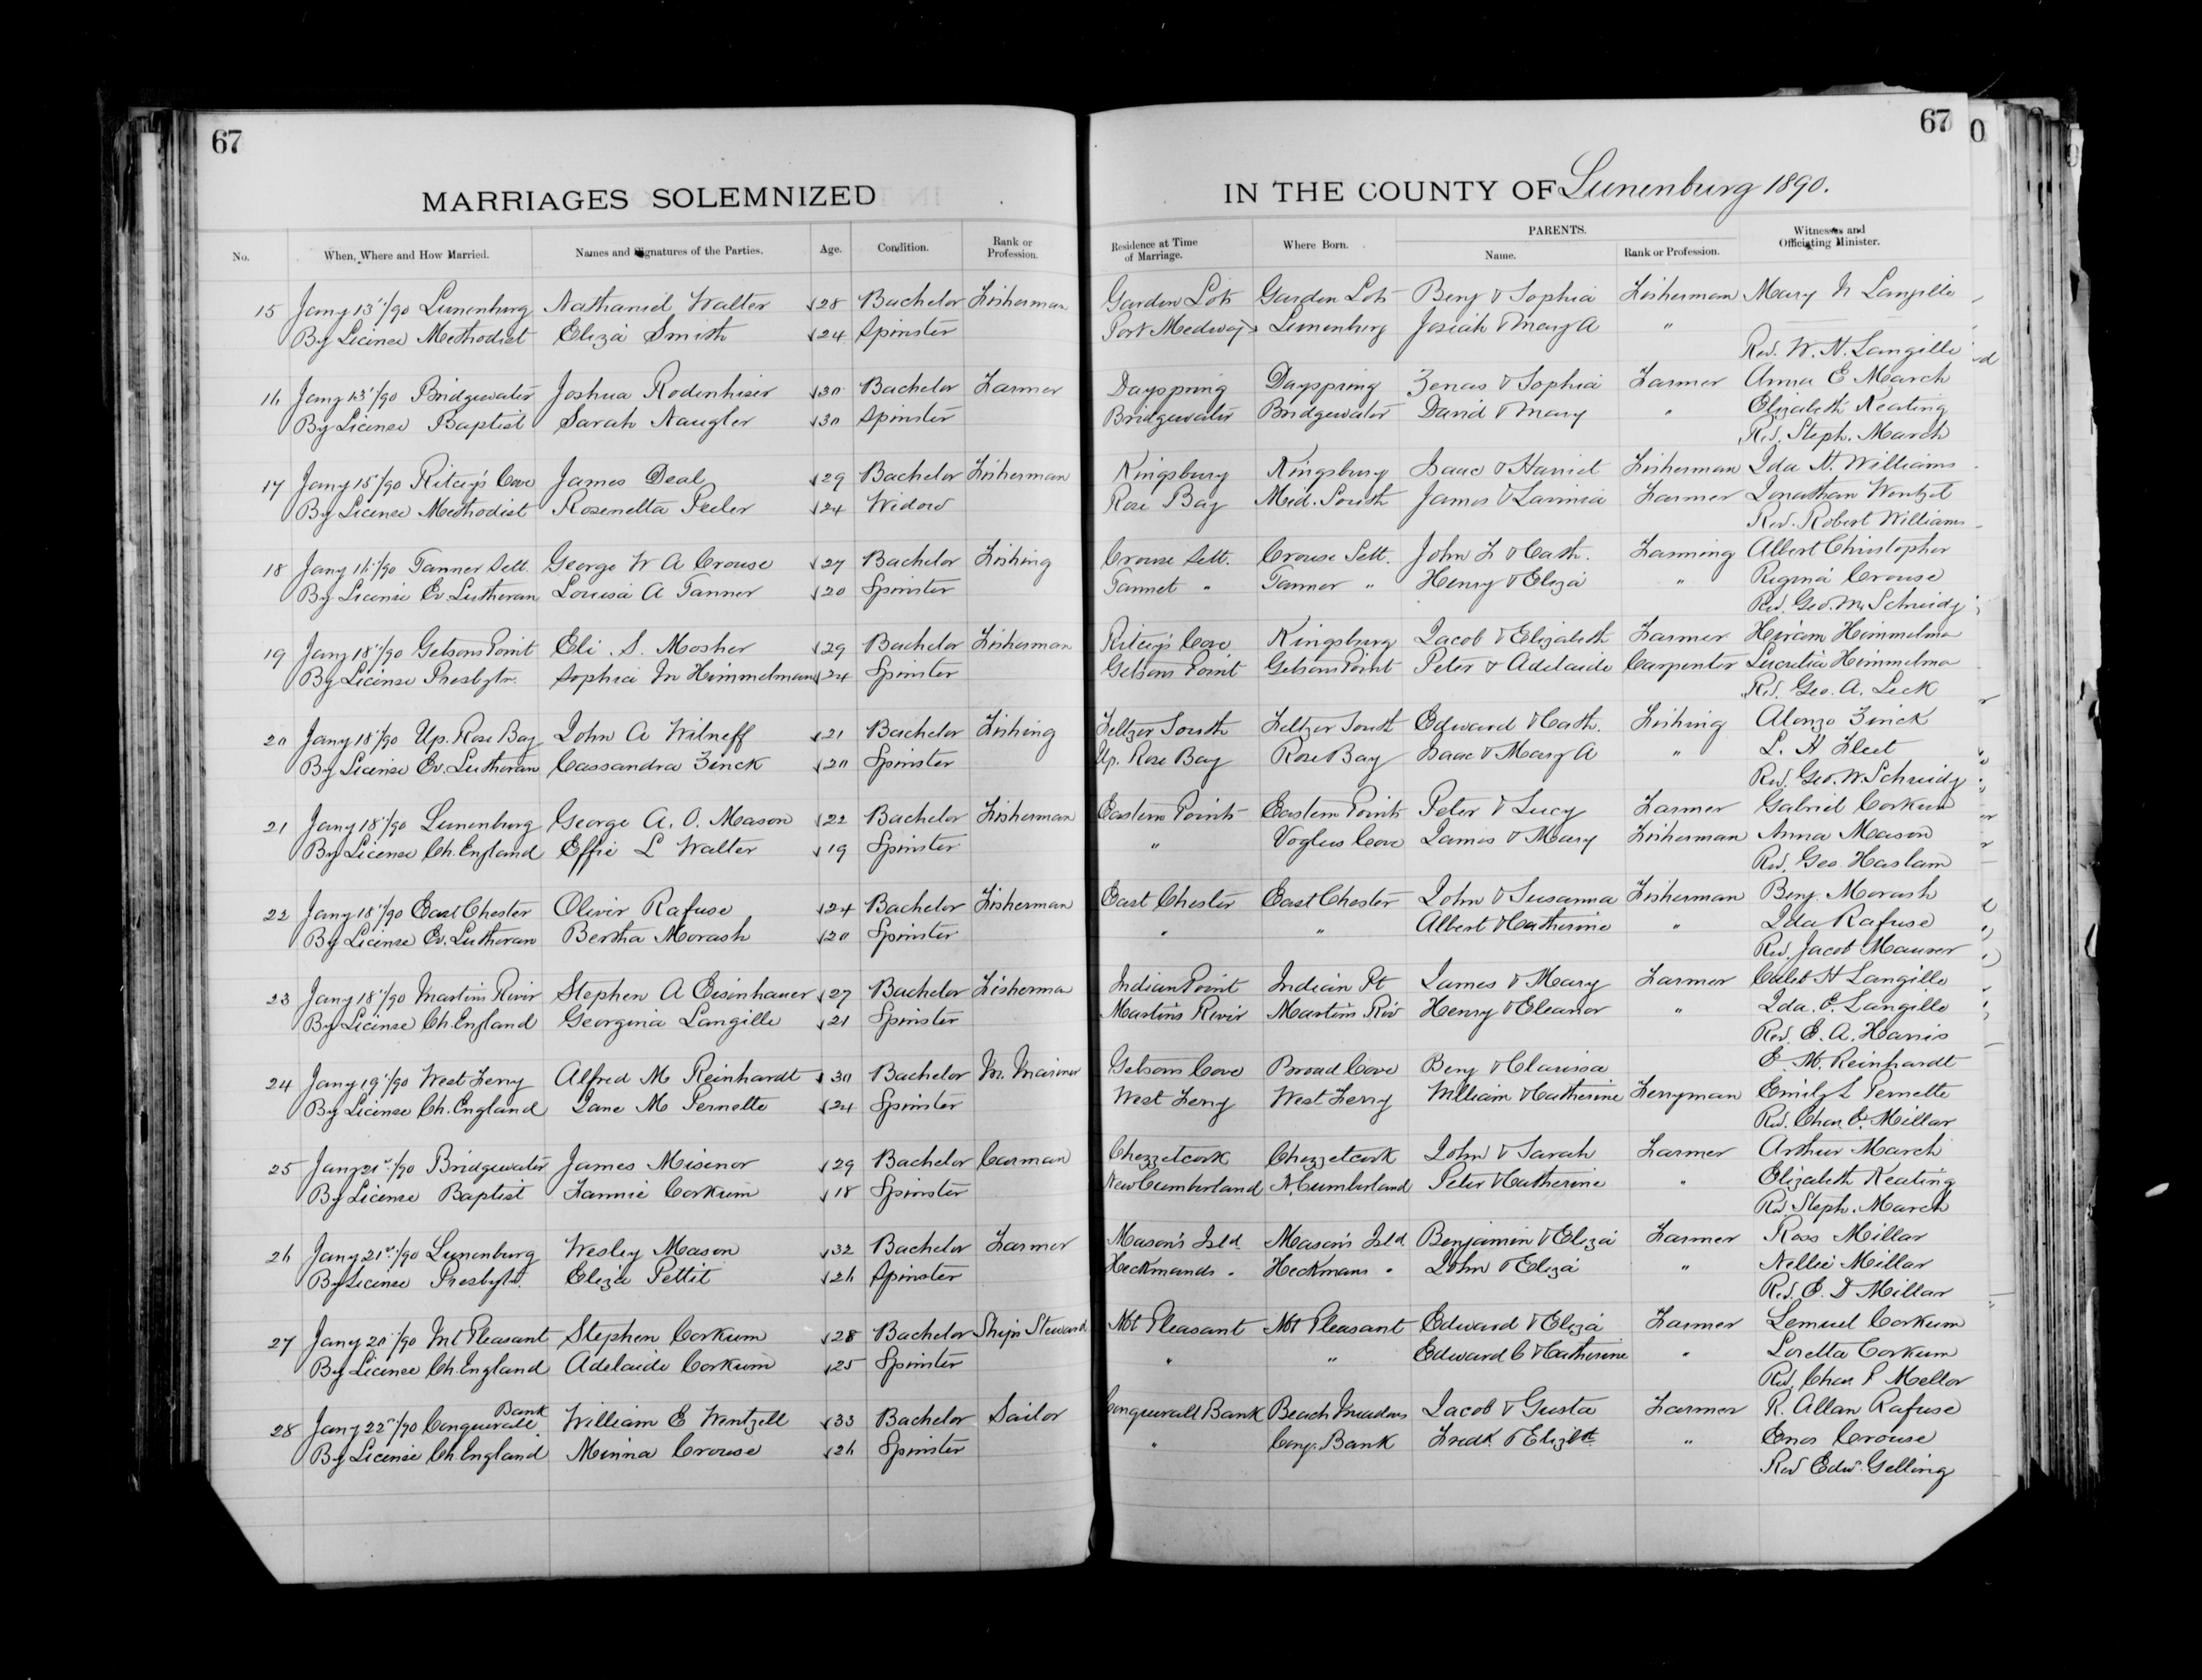 67
67
0
MARRIAGES SOLEMNIZED IN THE COUNTY OF Lunenburg 1890.
No. When, Where and How Married. Names and Signatures of the Parties. Age. Condition. Rank or Profession. Residence at Time of Marriage. Where Born. PARENTS. Name. Rank or Profession. Witnesses and Officiating Minister.
15 Jany 13"/90 Lunenburg Nathaniel Walter 28 Bachelor Fisherman Garden Lots Garden Lots Benj & Sophia Fisherman Mary N Langille
By License Methodist Eliza Smith 24 Spinster Port Medway Lunenburg Josiah & Mary A "
Rev. W. N. Langille
16 Jany 13"/90 Bridgewater Joshua Rodenhiser 30 Bachelor Farmer Dayspring Dayspring Zenas & Sophia Farmer Anna E March
By License Baptist Sarah Naugler 30 Spinster Bridgewater Bridgewater David & Mary " Elizabeth Keating
Rev. Steph. March
17 Jany 15"/90 Ritcey's Cove James Deal 29 Bachelor Fisherman Kingsbury Kingsbury Isaac & Harriet Fisherman Ida H. Williams
By License Methodist Rosenetta Peeler 24 Widow Rose Bay Mid. South James & Lavinia Farmer Jonathan Wentzel
Rev. Robert Williams
18 Jany 16"/90 Tanner Sett. George W A Crouse 27 Bachelor Fishing Crouse Sett. Crouse Sett. John F & Cath. Farming Albert Christopher
By License Ev. Lutheran Louisa A Tanner 20 Spinster Tanner " Tanner " Henry & Eliza " Regina Crouse
Rev. Geo. M. Schmidg
19 Jany 18"/90 Getsons Point Eli. S. Mosher 29 Bachelor Fisherman Ritcey's Cove Kingsburg Jacob & Elizabeth Farmer Hiram Himmelma
By License Presbytr. Sophia M Himmelman 24 Spinster Getsons Point Getsons Point Peter & Adelaide Carpenter Lucretia Himmelma
Rev. Geo. A. Leck
20 Jany 18"/90 Up. Rose Bay John A Wilneff 21 Bachelor Fishing Feltzer South Feltzer South Edward & Cath. Fishing Alonzo Zinck
By License Ev. Lutheran Cassandra Zinck 20 Spinster Up. Rose Bay Rose Bay Isaac & Mary A " L. H Fleet
Rev. Geo. W. Schmidg
21 Jany 18"/90 Lunenburg George A. O. Mason 22 Bachelor Fisherman Eastern Points Eastern Points Peter & Lucy Farmer Gabriel Corkum
By License Ch. England Effie L Walter 19 Spinster " Voglers Cove James & Mary Fisherman Anna Mason
Rev. Geo. Haslam
22 Jany 18"/90 East Chester Oliver Rafuse 24 Bachelor Fisherman East Chester East Chester John & Susanna Fisherman Benj. Morash
By License Ev. Lutheran Bertha Morash 20 Spinster " " Albert & Catherine " Ida Rafuse
Rev. Jacob Maurer
23 Jany 18"/90 Martins River Stephen A Eisenhauer 27 Bachelor Fisherma Indian Point Indian Pt James & Mary Farmer Caleb H Langille
By License Ch. England Georgina Langille 21 Spinster Martin's River Martin's Riv Henry & Eleanor " Ida. E. Langille
Rev. E. A. Harris
24 Jany 19"/90 West Ferry Alfred M Reinhardt 30 Bachelor M. Mariner Getsons Cove Broad Cove Benj & Clarissa E. M. Reinhardt
By License Ch. England Jane M Pernette 24 Spinster West Ferry West Ferry William & Catherine Ferryman Emily L Pernette
Rev. Chas. E. Millar
25 Jany 21st/90 Bridgewater James Misenor 29 Bachelor Carman Chezzetcook Chezzetcook John & Sarah Farmer Arthur March
By License Baptist Fannie Corkum 18 Spinster New Cumberland N. Cumberland Peter & Catherine " Elizabeth Keating
Rev. Steph. March
26 Jany 21st/90 Lunenburg Wesley Mason 32 Bachelor Farmer Mason's Isld. Mason's Isld. Benjamin & Eliza Farmer Ross Millar
By License Presbytr. Eliza Pettit 26 Spinster Heckmands " Heckmans " John & Eliza " Nellie Millar
Rev. E. D Millar
27 Jany 20"/90 Mt Pleasant Stephen Corkum 28 Bachelor Ship's Steward Mt Pleasant Mt Pleasant Edward & Eliza Farmer Lemuel Corkum
By License Ch. England Adelaide Corkum 25 Spinster " " Edward C & Catherine " Loretta Corkum
Rev. Chas. E Mellor
28 Jany 22nd/90 Conquerall Bank William E Wentzell 33 Bachelor Sailor Conquerall Bank Beach Meadows Jacob & Gusta Farmer R. Allan Rafuse
By License Ch. England Minna Crouse 26 Spinster " Conq. Bank Fredk. & Elizbth " Enos Crouse
Rev Edw. Gelling